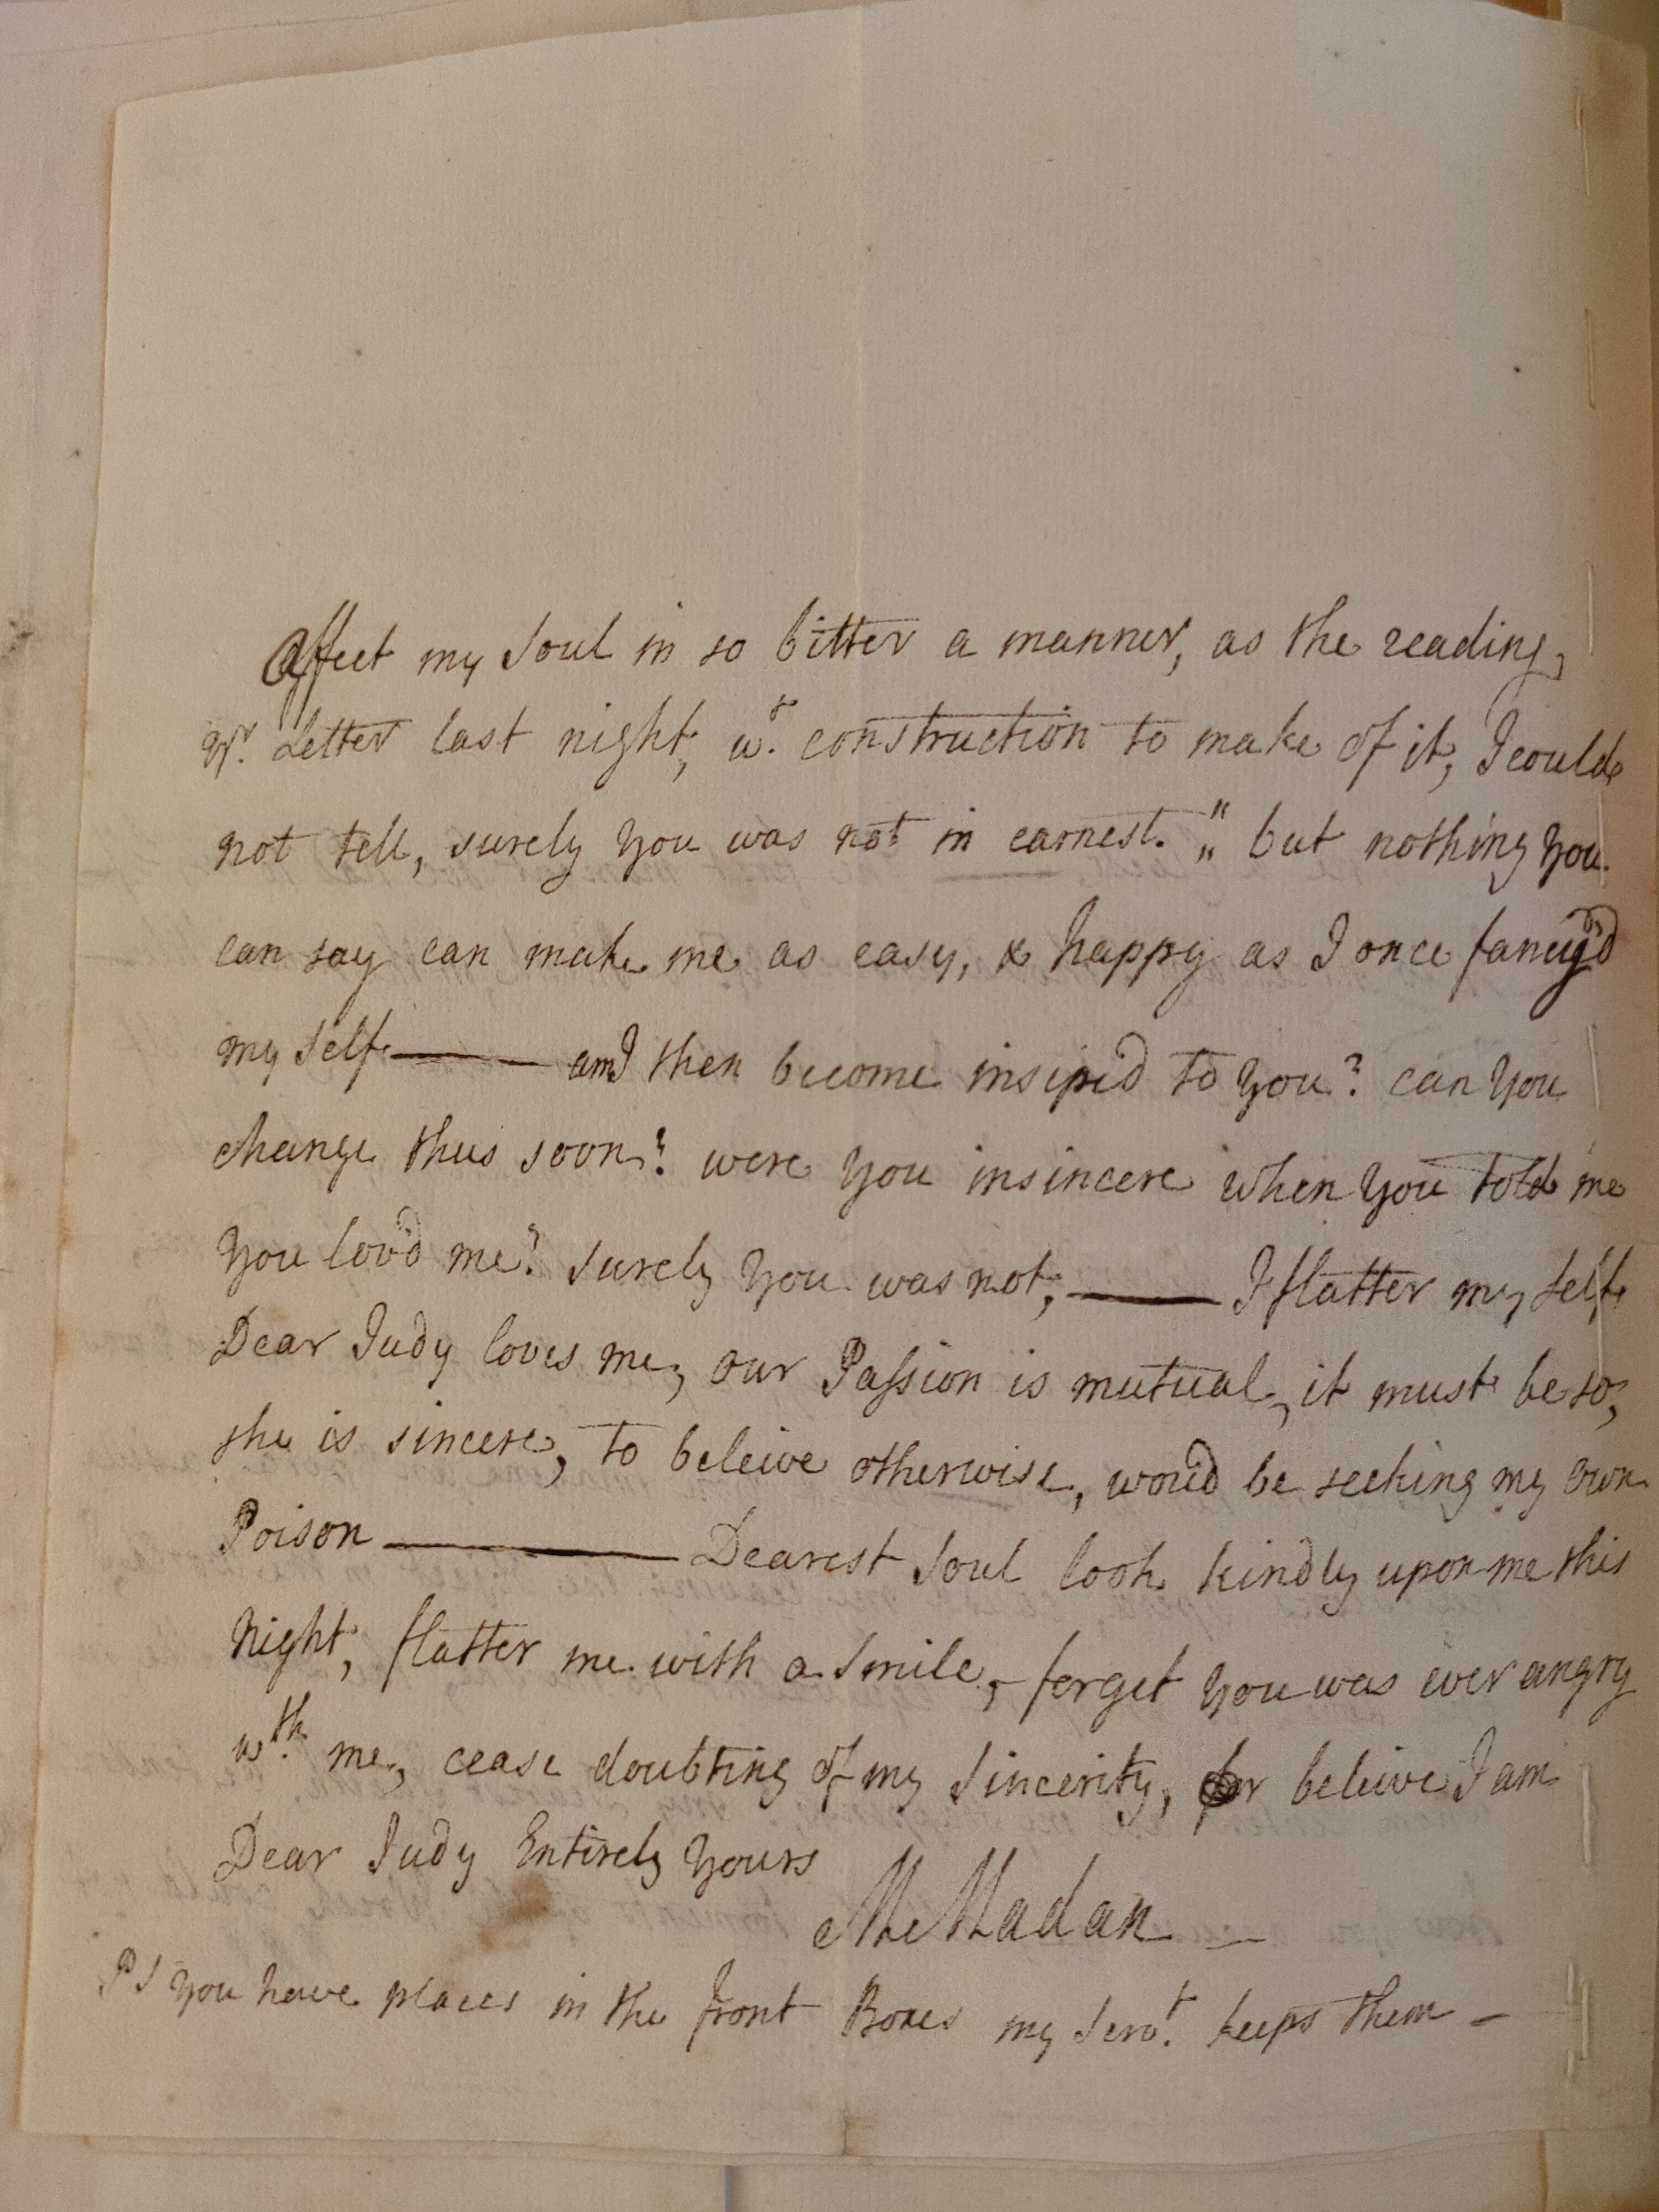 Affect my Soul in so bitter a manner, as the reading,
Yr. Letter last night, wt. construction to make of it, I could
not tell, surely you was not in earnest. "„ but nothing you
can say can make me as easy, & happy as I once fancy'd
my Self —— am I then become insipid to you? can you
change thus soon? were you insincere when you told me
you lov'd me? Surely you was not, —— I flatter my Self
Dear Judy loves me, our Passion is mutual, it must be so,
she is sincere, to beleive otherwise, wou'd be seeking my own
Poison —— Dearest Soul look kindly upon me this
night, flatter me with a Smile, forget you was ever angry
wth. me, cease doubting of my Sincerity, or beleive I am
Dear Judy Entirely yours
M Madan —
PS you have places in the front Boxes my Servt. keeps them —